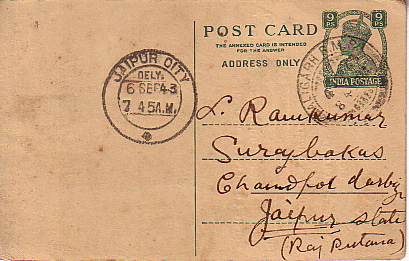 POST CARD
THE ANNEXED CARD IS INTENDED
FOR THE ANSWER
ADDRESS ONLY
9 PS
9 PS
INDIA POSTAGE
JAIPUR CITY
DELY.
6 SEP 43
7 45 A.M.
ALIGARH R.M.S.
L. Ramkumar
Surajbakas
Chandpol darbija
Jaipur State
(Rajputana)